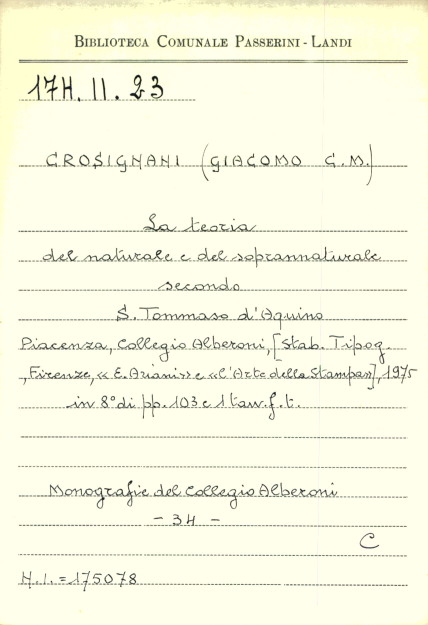 BIBLIOTECA COMUNALE PASSERINI - LANDI
17H. II. 23
CROSIGNANI (GIACOMO C.M.)
La teoria
del naturale e del soprannaturale
secondo
S. Tommaso d'Aquino
Piacenza, Collegio Alberoni, [Stab. Tipog.
, Firenze, « E. Ariani » e « l'Arte della Stampa »], 1975
in 8° di pp. 103 e 1 tav. f. t.
Monografie del Collegio Alberoni
- 34 -
C
N. I. = 175078